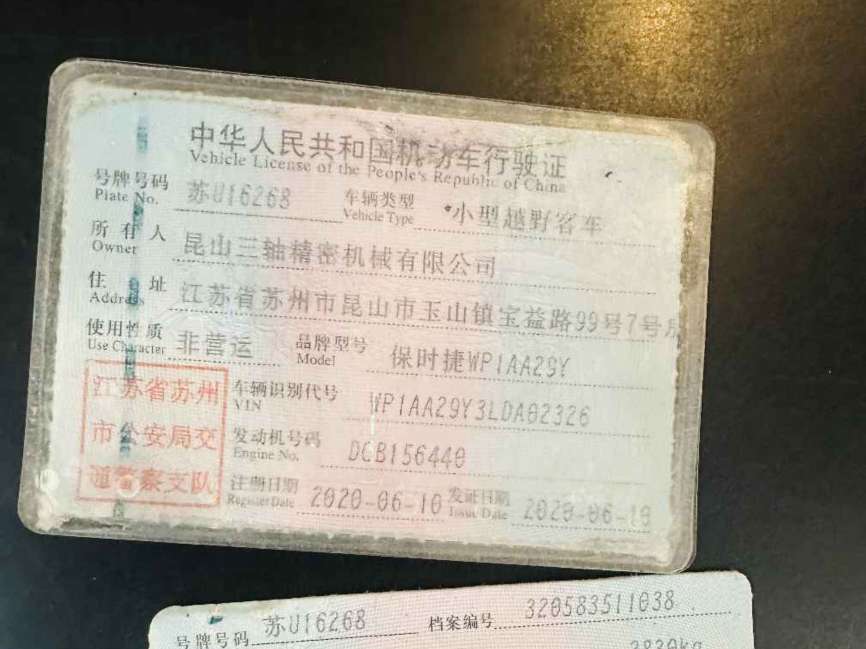 中华人民共和国机动车行驶证
Vehicle License of the People's Republic of China
号牌号码 苏U16268 车辆类型 小型越野客车
Plate No. Vehicle Type
所有人 昆山三轴精密机械有限公司
Owner
住址 江苏省苏州市昆山市玉山镇宝益路99号7号房
Address
使用性质 非营运 品牌型号 保时捷WP1AA29Y
Use Character Model
江苏省苏州 车辆识别代号 WP1AA29Y3LDA02326
VIN
市公安局交 发动机号码 DCB156440
Engine No.
通警察支队 注册日期 2020-06-10 发证日期 2020-06-10
Register Date Issue Date
号牌号码 苏U16268 档案编号 320583511038
2830kg